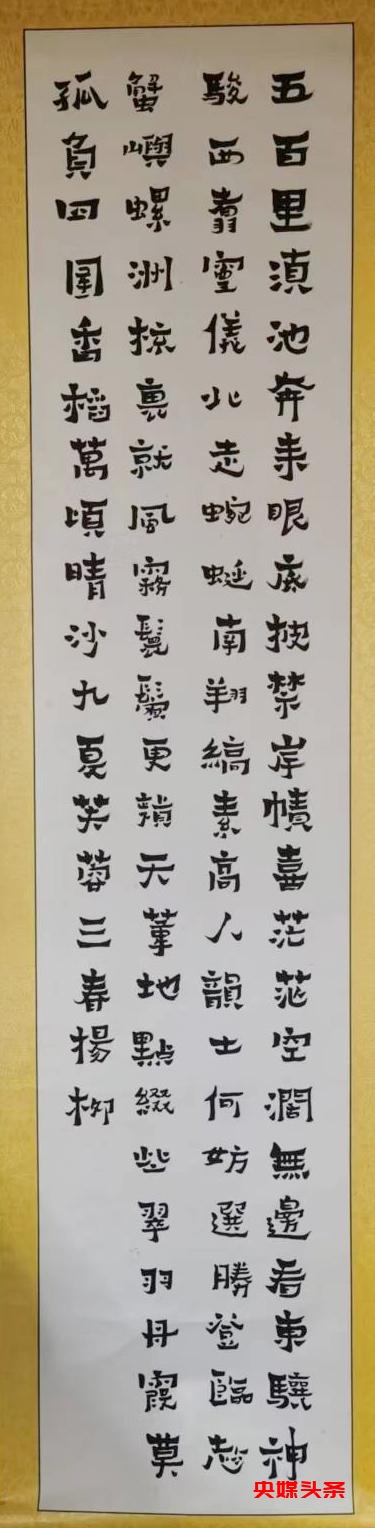 五百里滇池奔来眼底披禁岸幘喜茫茫空濶無邊看東驤神
駿西翥靈儀北走蜿蜒南翔縞素高人韻士何妨選勝登臨趁
蟹嶼螺洲梳裹就風霧鬟鬢更蘋天葦地點綴些翠羽丹霞莫
孤負四圍香稻萬頃晴沙九夏芙蓉三春楊柳
央媒头条